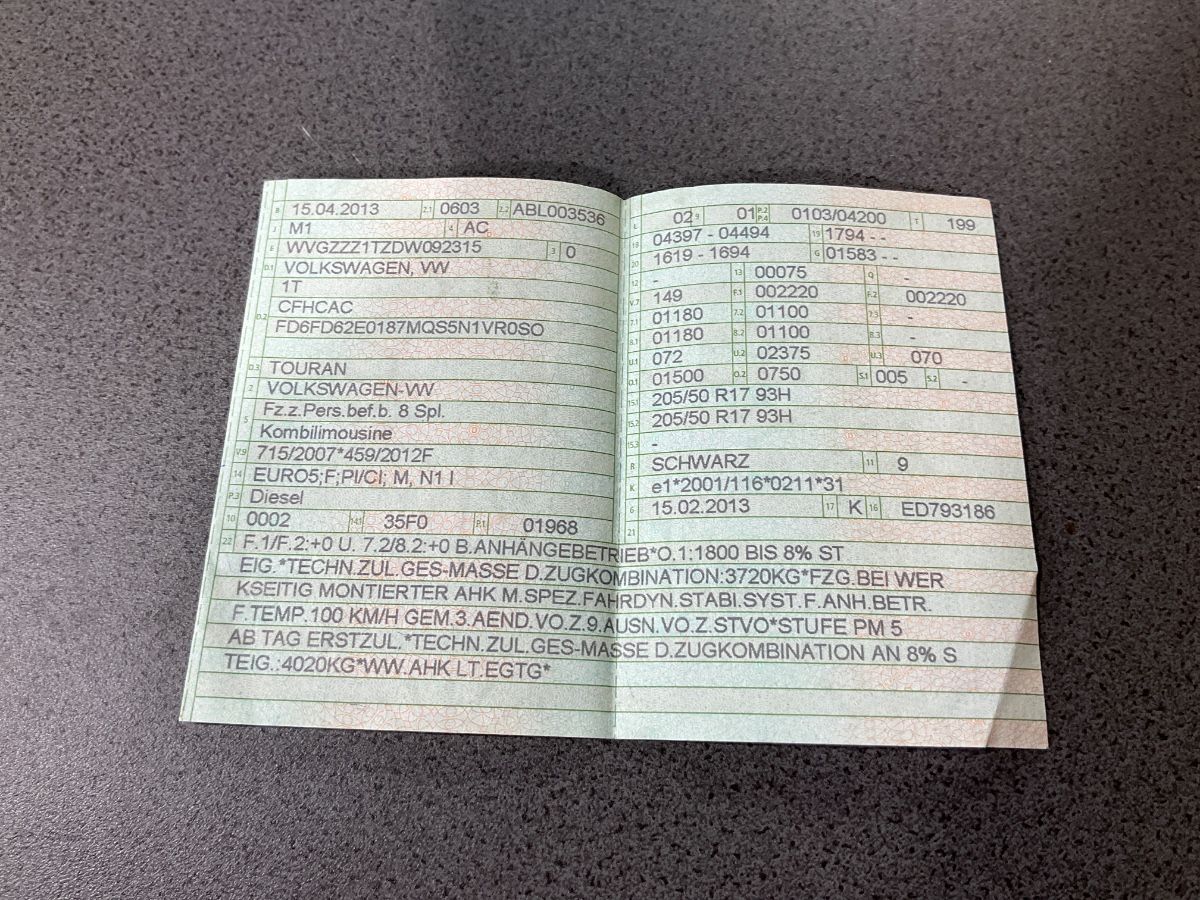 B 15.04.2013 2.1 0603 2.2 ABL003536
J M1 4 AC
E WVGZZZ1TZDW092315 3 0
D.1 VOLKSWAGEN, VW
1T
D.2 CFHCAC
FD6FD62E0187MQS5N1VR0SO
D.3 TOURAN
2 VOLKSWAGEN-VW
5 Fz.z.Pers.bef.b. 8 Spl.
Kombilimousine
V.9 715/2007*459/2012F
14 EURO5;F;PI/CI; M, N1 I
P.3 Diesel
10 0002 14.1 35F0 P.1 01968
L 02 9 01 P.2 P.4 0103/04200 T 199
18 04397 - 04494 19 1794 - -
20 1619 - 1694 G 01583 - -
12 - 13 00075 Q -
V.7 149 F.1 002220 F.2 002220
7.1 01180 7.2 01100 7.3 -
8.1 01180 8.2 01100 8.3 -
U.1 072 U.2 02375 U.3 070
O.1 01500 O.2 0750 S.1 005 S.2 -
15.1 205/50 R17 93H
15.2 205/50 R17 93H
15.3 -
R SCHWARZ 11 9
K e1*2001/116*0211*31
6 15.02.2013 17 K 16 ED793186
21
22 F.1/F.2:+0 U. 7.2/8.2:+0 B.ANHÄNGEBETRIEB*O.1:1800 BIS 8% ST
EIG.*TECHN.ZUL.GES-MASSE D.ZUGKOMBINATION:3720KG*FZG.BEI WER
KSEITIG MONTIERTER AHK M.SPEZ.FAHRDYN.STABI.SYST.F.ANH.BETR.
F.TEMP.100 KM/H GEM.3.AEND.VO.Z.9.AUSN.VO.Z.STVO*STUFE PM 5
AB TAG ERSTZUL.*TECHN.ZUL.GES-MASSE D.ZUGKOMBINATION AN 8% S
TEIG.:4020KG*WW.AHK LT.EGTG*